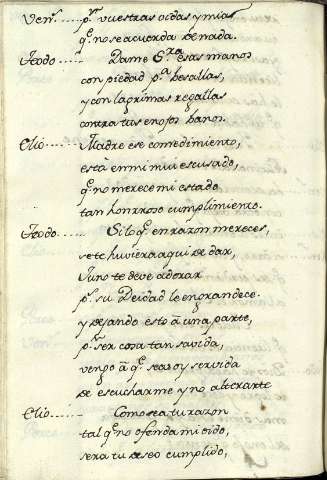 Ven.s pr. vuestras vidas y mias,
q.e no se acuerda de nada.
Teodo..... Dame S.ra esas manos
con piedad p.a besallas,
y con lagrimas regallas
contra tus enojos banos.
Clio..... Madre ese comedimiento,
està en mi mui escusado,
q.e no merece mi estado
tan honrroso cumplimiento.
Teodo..... Si lo q.e en razon mereces,
se te huviera aqui de dar,
Juno te deve adorar
pr. su Deidad le engrandece.
y dejando esto à una parte,
pr. ser cosa tan savida,
vengo à q.e seas oy servida
de escucharme y no alterarte
Clio..... Como sea tu razon
tal q.e no ofenda mi oido,
sera tu deseo cumplido,